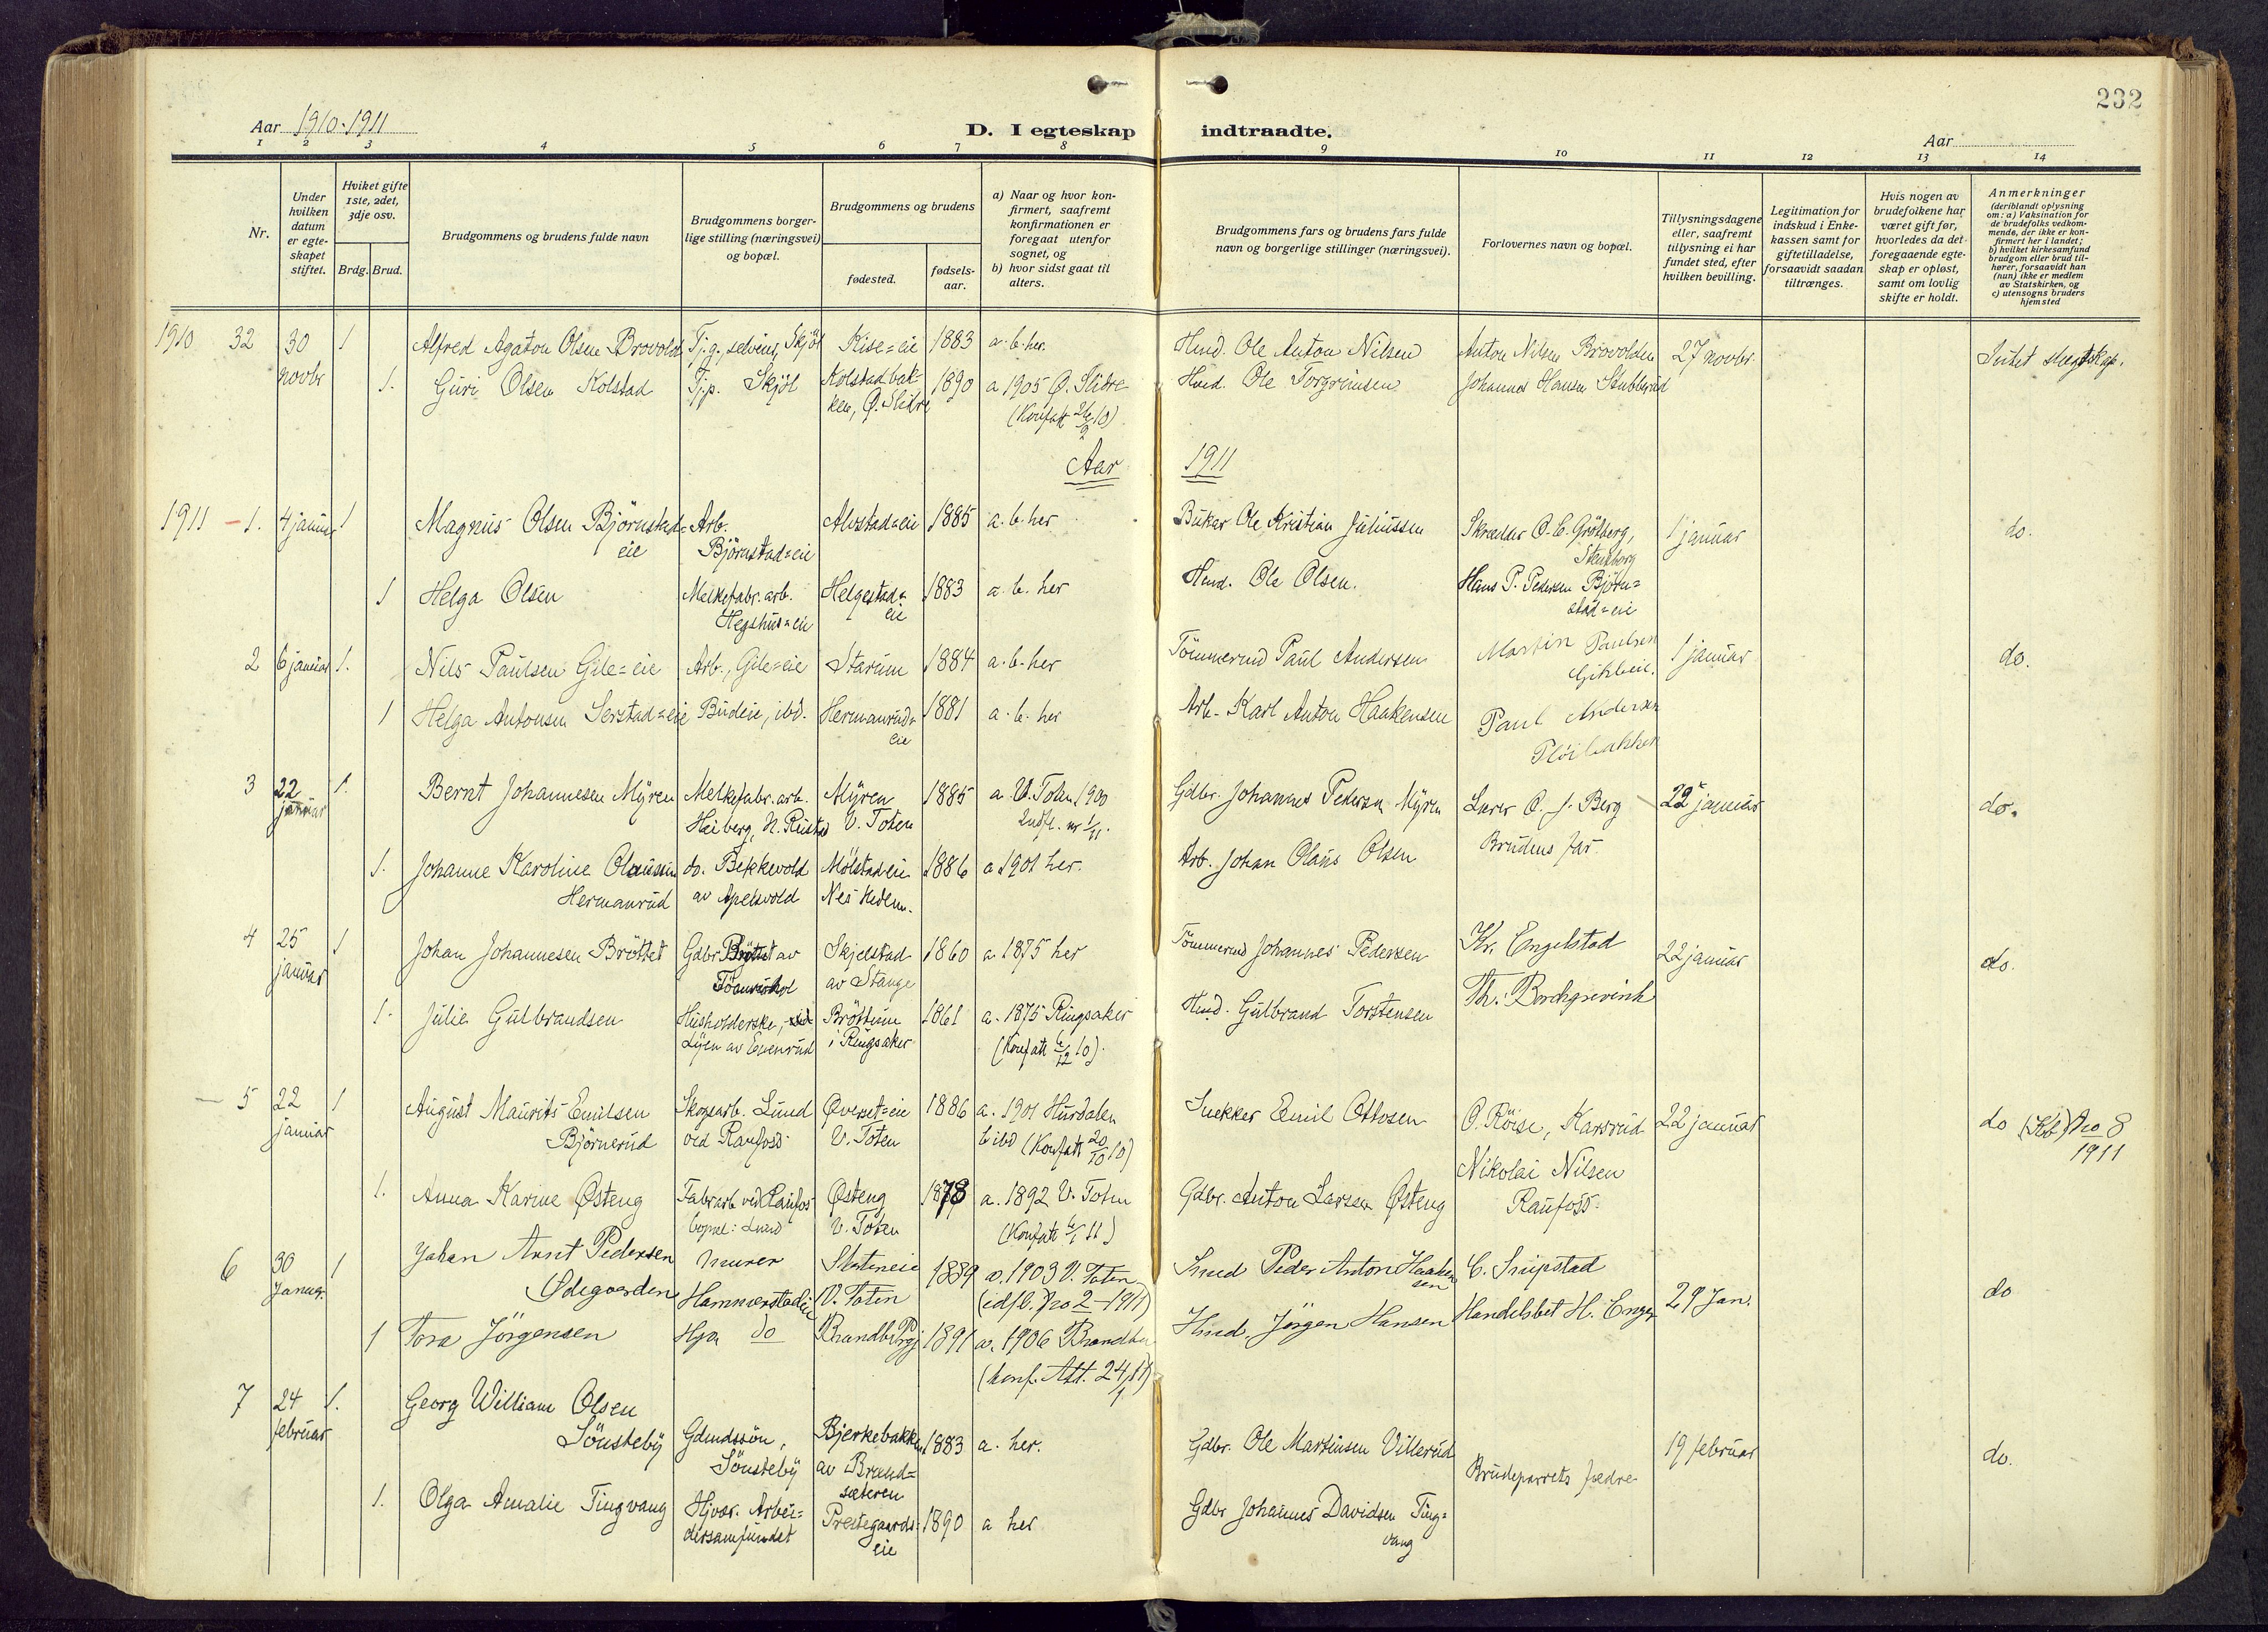 232
Aar 1910-1911
D. I egteskap indtraadte.
Aar
1 2 3 4 5 6 7 8 9 10 11 12 13 14
Nr.
Under hvilken datum er egteskapet stiftet.
Hviket gifte 1ste, 2det, 3dje osv.
Brdg. Brud.
Brudgommens og brudens fulde navn
Brudgommens borgerlige stilling (næringsvei) og bopæl.
Brudgommens og brudens
fødested.
fødselsaar.
a) Naar og hvor konfirmert, saafremt konfirmationen er foregaat utenfor sognet, og
b) hvor sidst gaat til alters.
Brudgommens fars og brudens fars fulde navn og borgerlige stillinger (næringsvei).
Forlovernes navn og bopæl.
Tillysningsdagene eller, saafremt tillysning ei har fundet sted, efter hvilken bevilling.
Legitimation for indskud i Enkekassen samt for giftetilladelse, forsaavidt saadan tiltrænges.
Hvis nogen av brudefolkene har været gift før, hvorledes da det foregaaende egteskap er opløst, samt om lovlig skifte er holdt.
Anmerkninger (deriblandt oplysning om: a) Vaksination for de brudefolks vedkommende, der ikke er konfirmert her i landet; b) hvilket kirkesamfund brudgom eller brud tilhører, forsaavidt han (hun) ikke er medlem av Statskirken, og c) utensogns bruders hjemsted
1910 32 30 novbr 1 Alfred Agaton Olsen Brovold Tj.g., selveier, Skjøl Kise=eie 1883 a. b. her. Husd. Ole Anton Nilsen Anton Nilsen Brovolden 27 novbr. Intet slegtskap.
1. Guri Olsen Kolstad Tj.p. Skjöl Kolstadbakken, Ø. Slidre 1890 a 1905 Ø. Slidre (Konfatt 26/9 10) Husd. Ole Torgrimsen Johannes Hansen Stubberud
Aar 1911
1911 - 1. 4 januar 1 Magnus Olsen Björnstad=eie Arb. Björnstad=eie Alvstad=eie 1885 a. b. her Ole Kristian Juliussen Skrædder O. C. Grötberg, 1 januar do.
1 Helga Olsen Melkefabr. arb. Hegshus=eie Helgestad=eie 1883 a. b. her Husd. Ole Olsen. Hans P. Pedersen Björnstad=eie
2 6 januar 1. Nils Paulsen Gile=eie Arb., Gile=eie Starum 1884 a. b. her Tömmermd Paul Andersen Martin Paulsen 1 januar do.
1 Helga Antonsen Serstad=eie Budeie, ibd. Hermanrud=eie 1881 a. b. her Arb. Karl Anton Haakensen Paul Andersen Plöibakken
3 22 januar 1. Bernt Johannesen Myren Melkefabr. arb. Heiberg, N. Rustad Myren V. Toten 1885 a V. Toten 1900 Indfl. nr 1/11. Gdbr. Johannes Pedersen Myren Lærer O. J. Berg 22 januar do.
1. Johanne Karoline Olaussen Hermanrud do. Bekkevold av Apelsvold Mölstadeie Nes Hedem. 1886 a 1901 her. Arb. Johan Olaus Olsen Brudens far.
4 25 januar 1 Johan Johannesen Bröttet Gdbr Bröttet av Skjelstad av Stange 1860 a 1875 her Tömmermd Johannes Pedersen Kr. Engelstad 22 januar do.
1. Julie Gulbrandsen Husholderske, Lyen av Evenrud Bröttum i Ringsaker 1861 a. 1875 Ringsaker (Konfatt 6/12 10). Husd. Gulbrand Torstensen Th. Borchgrevink
5 22 januar 1 August Maurits Emilsen Björnerud Skogsarb. Lund ved Raufoss Øverset=eie V. Toten 1886 a. 1901 Hurdalen b ibd (Konfatt 20/10 10) Snekker Emil Ottosen O. Röise, Karsrud 22 januar do No 8 1911
1. Anna Karine Østeng Fabrarb ved Raufos bopæl: Lund Østeng V. Toten 1878 a. 1892 V. Toten (Konfatt 6/1 11) Gdbr. Anton Larsen Østeng Nikolai Nilsen Raufoss
6 30 Januar. 1 Johan Arnt Pedersen Ødegaarden Murer Hammerstadeie V. Toten 1889 a. 1903 V. Toten (idfl. No 2-1911) Smed Peder Anton Haakensen C. Snipstad 29 Jan. do
1 Tora Jörgensen Hjm do Brandbu 1891 a. 1906 Brandbu (konf. Att. 24/1 11) Husd. Jörgen Hansen Handelsbet H. Enger
7 24 februar 1. Georg William Olsen Sönsteby Gdmdssön, Sönsteby Bjerkebakken av Brandsæteren 1883 a. her. Gdbr. Ole Martinsen Villerud Brudeparrets fædre 19 februar do.
1. Olga Amalie Tingvang Hjvær. Arbeidersamfundet Prestegaards=eie 1890 a her Gdbr Johannes Davidsen Tingvang